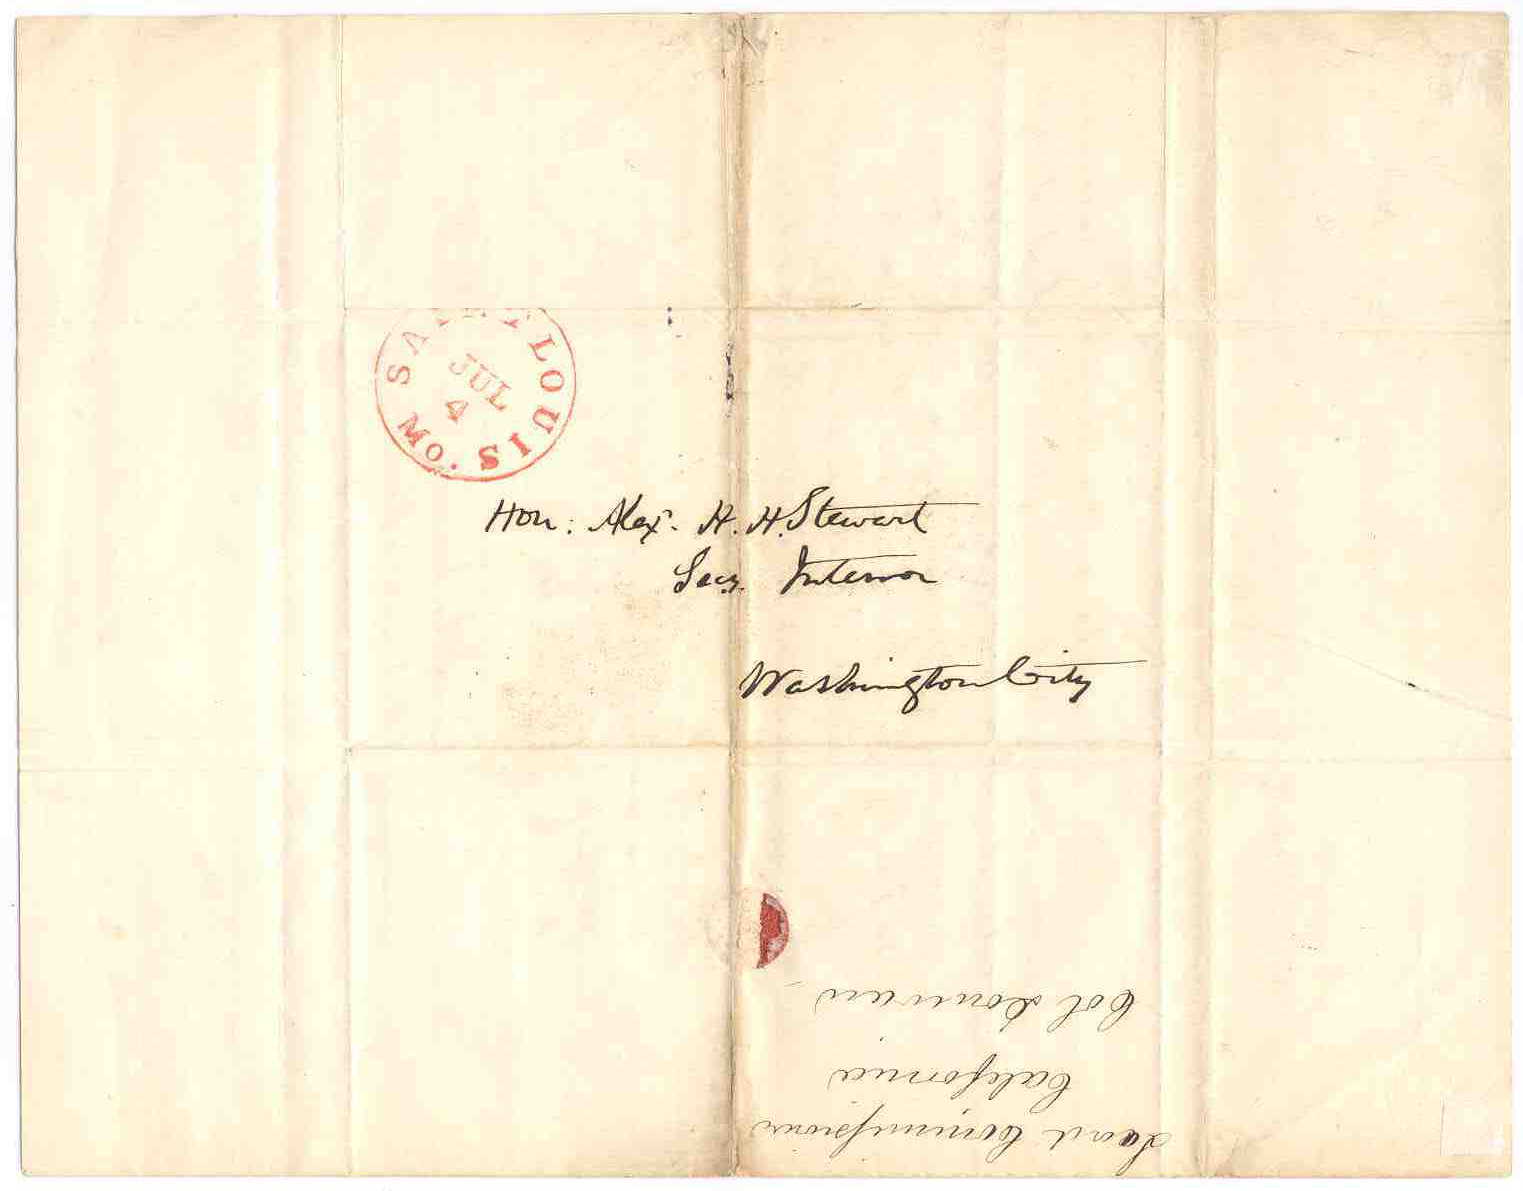 SAINT LOUIS Mo.
JUL
4
Hon: Alexr. H. H. Stewart
Secy. Interior
Washington City
Land Commissioner
California
Col